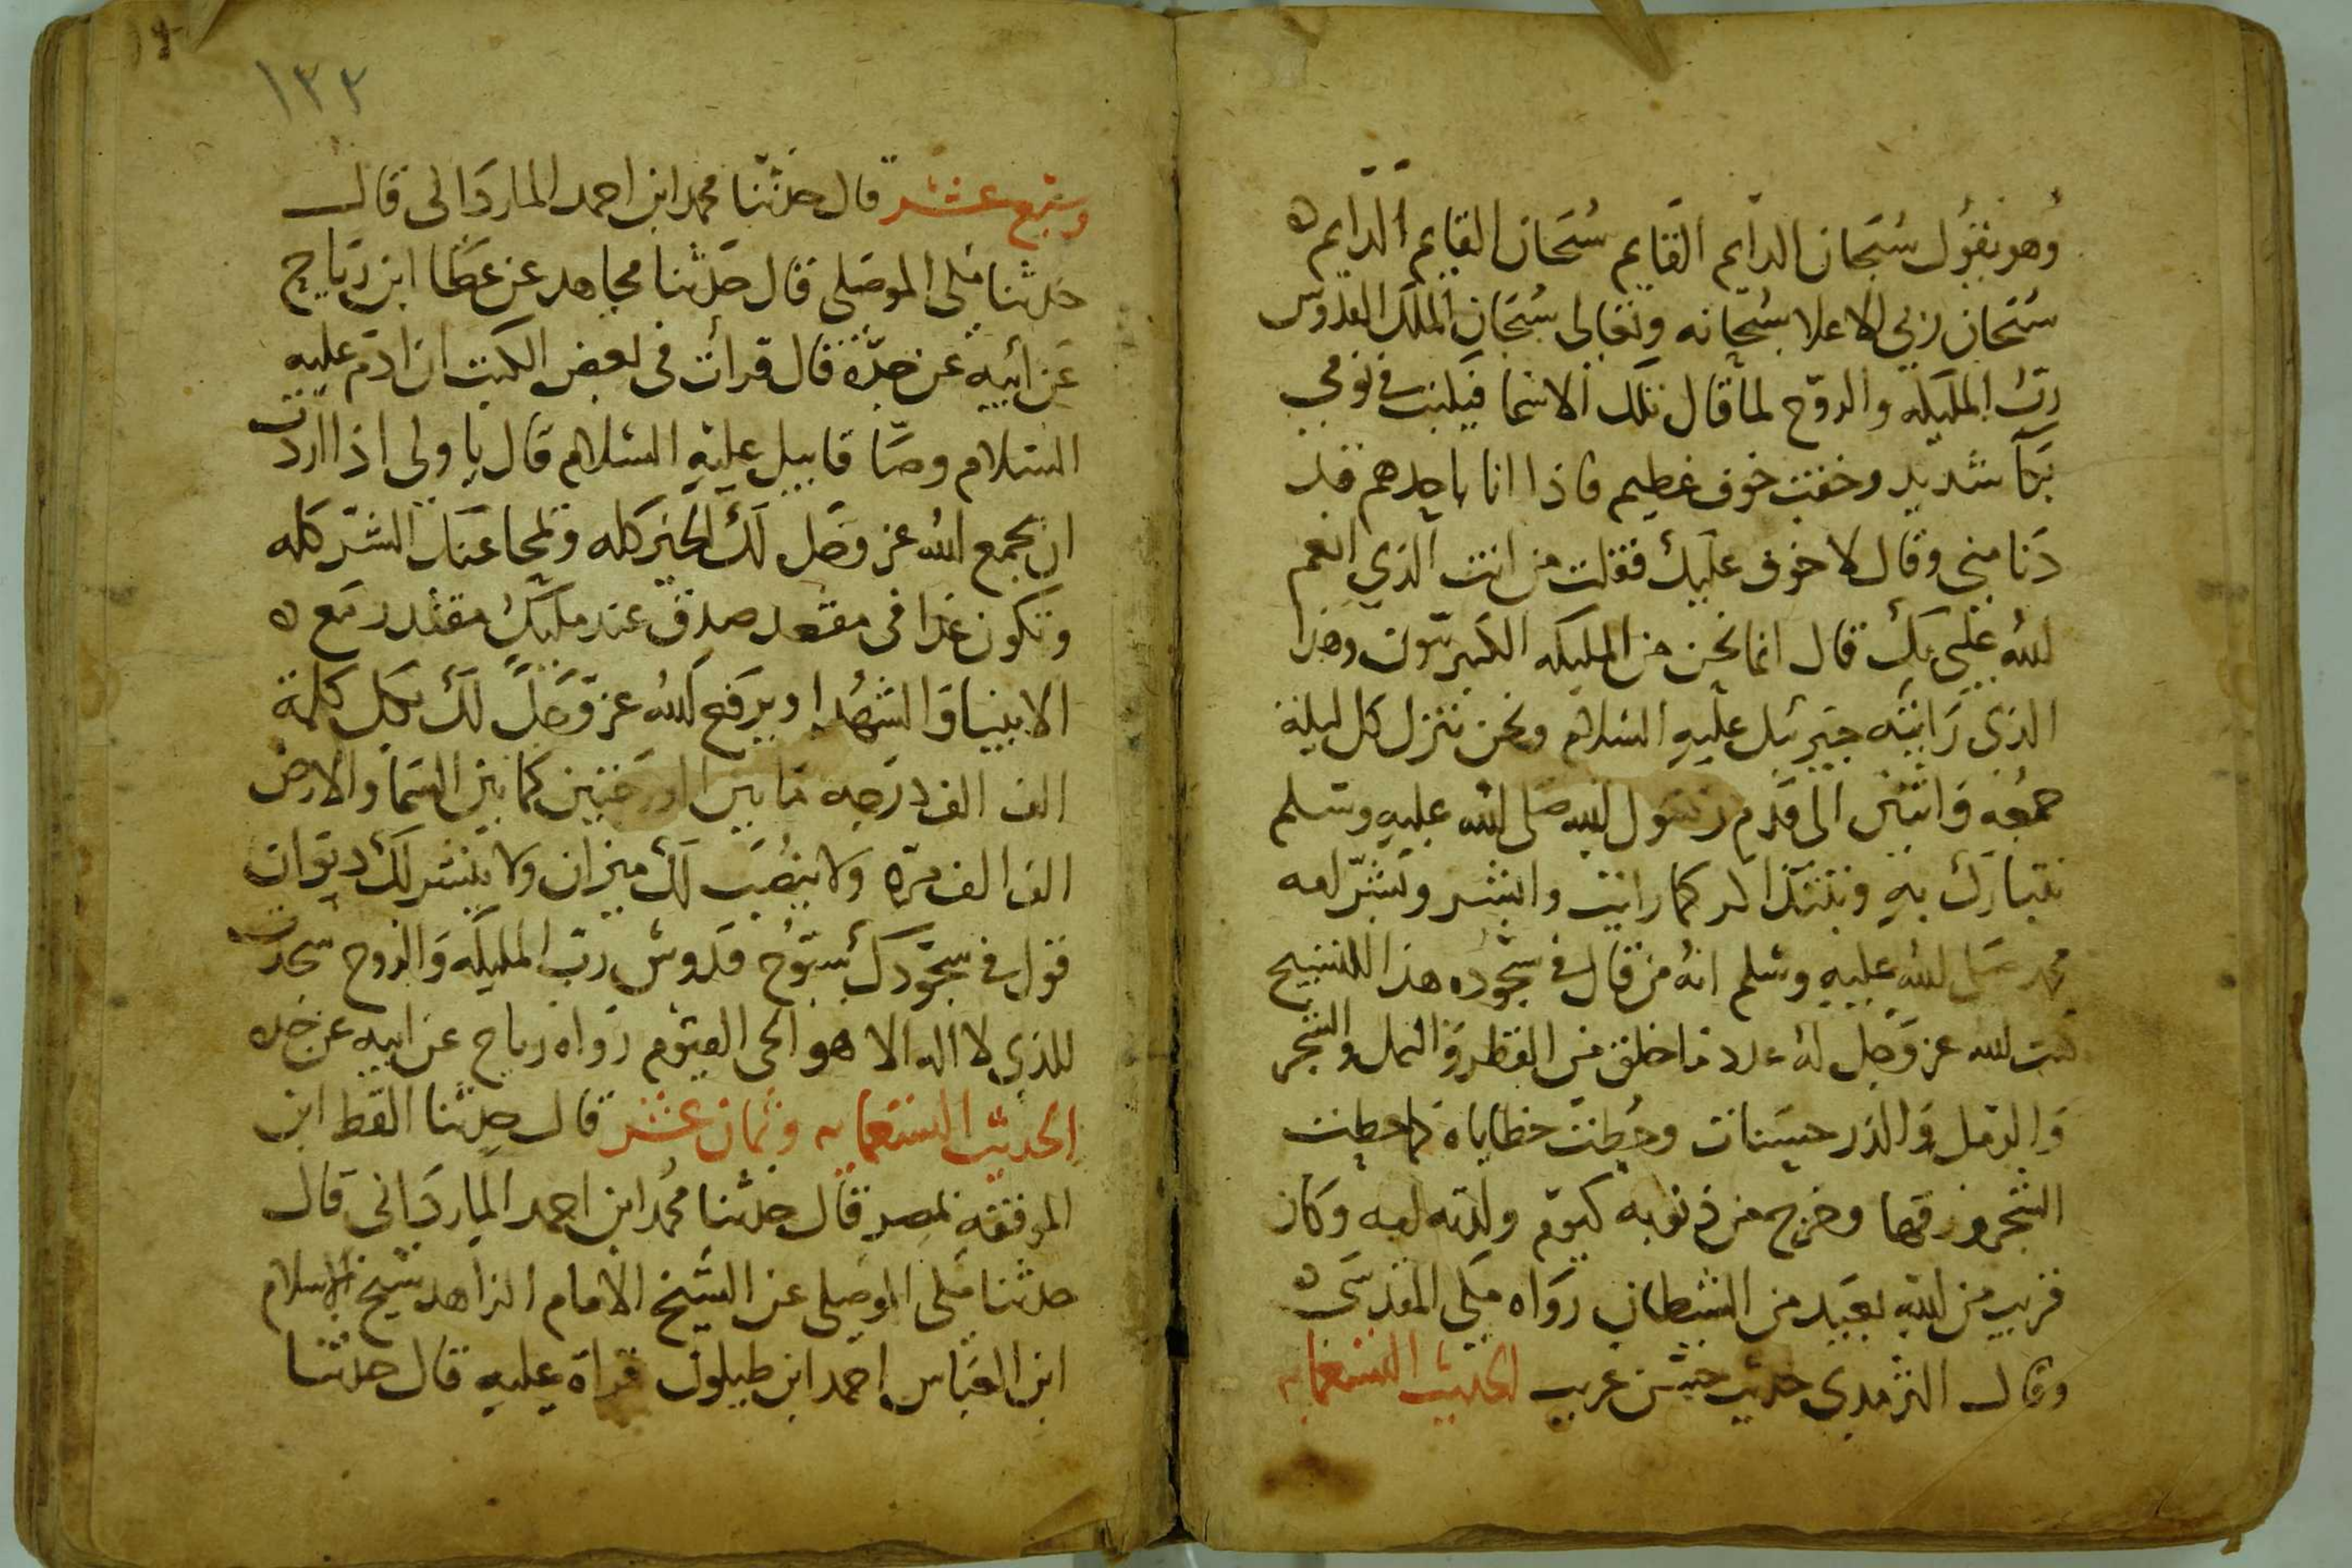 وهو يقول سبحان الدايم القايم سبحان القايم الدايم
سبحان ربي الاعلا سبحانه وتعالى سبحان الملك القدوس
رب المليكه والروح لما قال تلك الاسما فبكيت في نومي
بكآ شديد وخفت خوف عظيم فاذا انا باحدهم قد
دنا مني وقال لا خوف عليك فقلت من انت الذي انعم
الله علي بك قال انما نحن من المليكه الكبريتون وهذا
الذي رايته جبرئيل عليه السلام ونحن ننزل كل ليلة
جمعه واثنين الى قدم رسول الله صلى الله عليه وسلم
نتبارك به ونتذاكر كما رايت وابشر وبشر امه
محمد صلى الله عليه وسلم انه من قال في سجوده هذا التسبيح
كتب الله عز وجل له عدد ما خلق من القطر والنمل والشجر
والرمل والذر حسنات وحطت خطاياه كما حطت
الشجر ورقها وخرج من ذنوبه كيوم ولدته امه وكان
قريب من الله بعيد من الشيطان رواه مكي المقدسي
وقال الترمدي حديث حسن غريب الحديث التسعمايه
١٣٣
وسبع عشر قال حدثنا محمد ابن احمد الماردانى قال
حدثنا مكى الموصلى قال حدثنا مجاهد عن عطا ابن رباح
عن ابيه عن جده قال قرات في بعض الكتب ان ادم عليه
السلام وصا قابيل عليه السلام قال يا ولى اذا اردت
ان يجمع الله عز وجل لك الخير كله ويمحا عنك الشر كله
وتكون غدا في مقعد صدق عند مليك مقتدر مع
الانبيا والشهدا ويرفع الله عز وجل لك بكل كلمة
الف الف درجه ما بين الدرجتين كما بين السما والارض
الف الف مره ولا ينصب لك ميزان ولا ينشر لك ديوان
قول في سجودك سبوح قدوس رب المليكه والروح سجدت
للذي لا اله الا هو الحى القيوم رواه رباح عن ابيه عن جده
الحديث التسعمايه وثمان عشر قال حدثنا القط ابن
الموفقه بمصر قال حدثنا محمد ابن احمد الماردانى قال
حدثنا مكى الموصلى عن الشيخ الامام الزاهد شيخ الاسلام
ابن العباس احمد ابن طيلون قراة عليه قال حدثنا